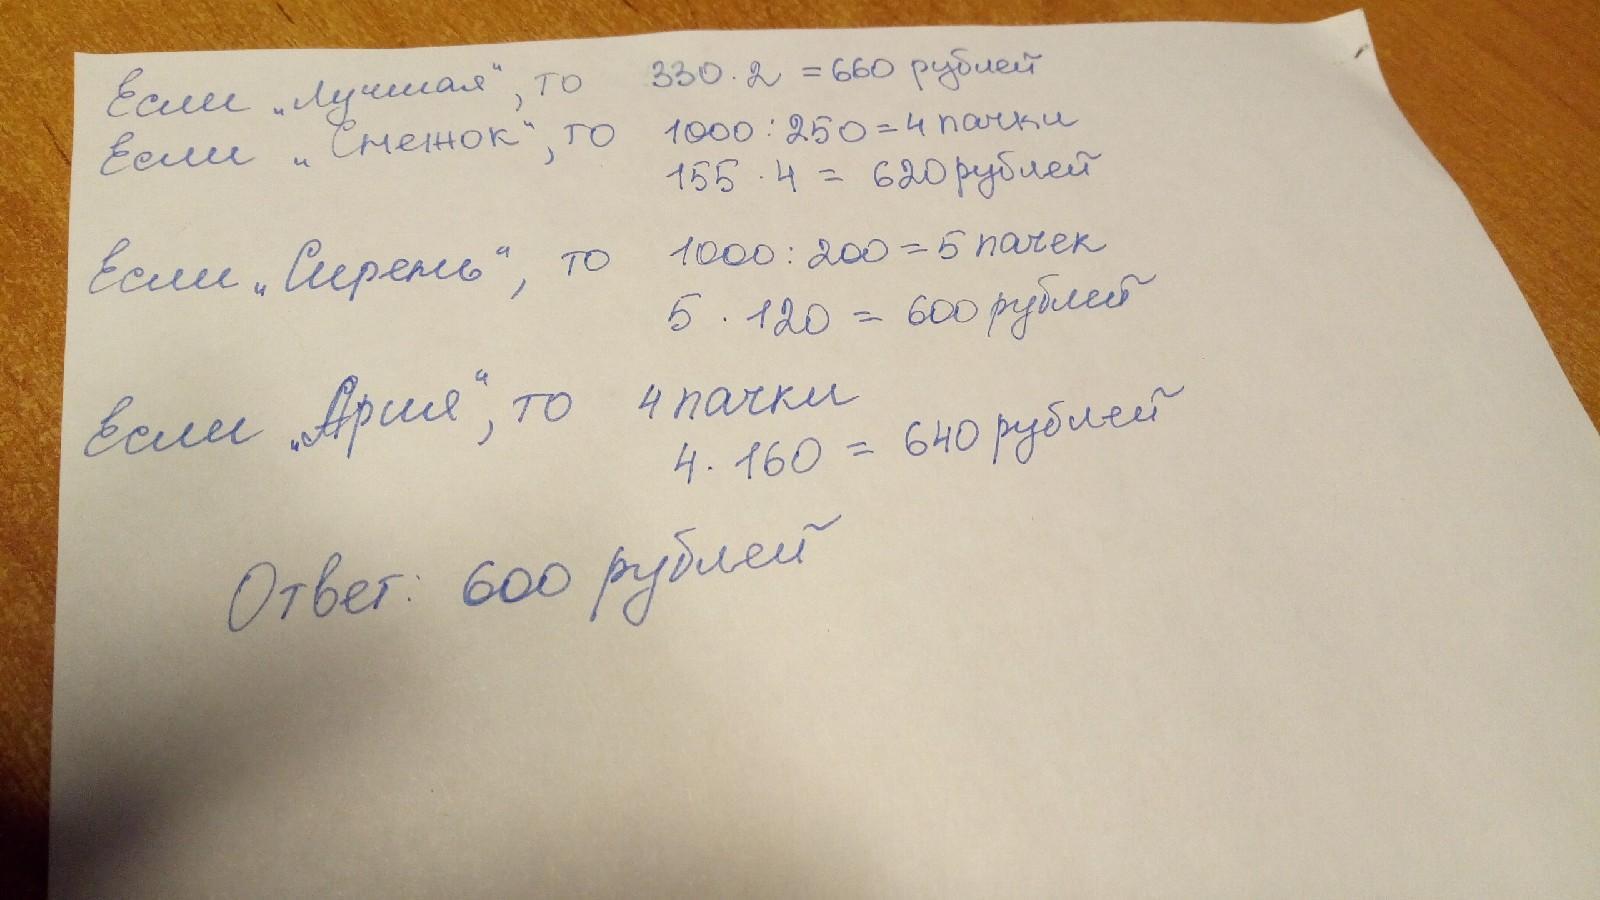 Если „Лучшая“, то 330 · 2 = 660 рублей
Если „Снежок“, то 1000 : 250 = 4 пачки
155 · 4 = 620 рублей
Если „Сирень“, то 1000 : 200 = 5 пачек
5 · 120 = 600 рублей
Если „Ария“, то 4 пачки
4 · 160 = 640 рублей
Ответ: 600 рублей